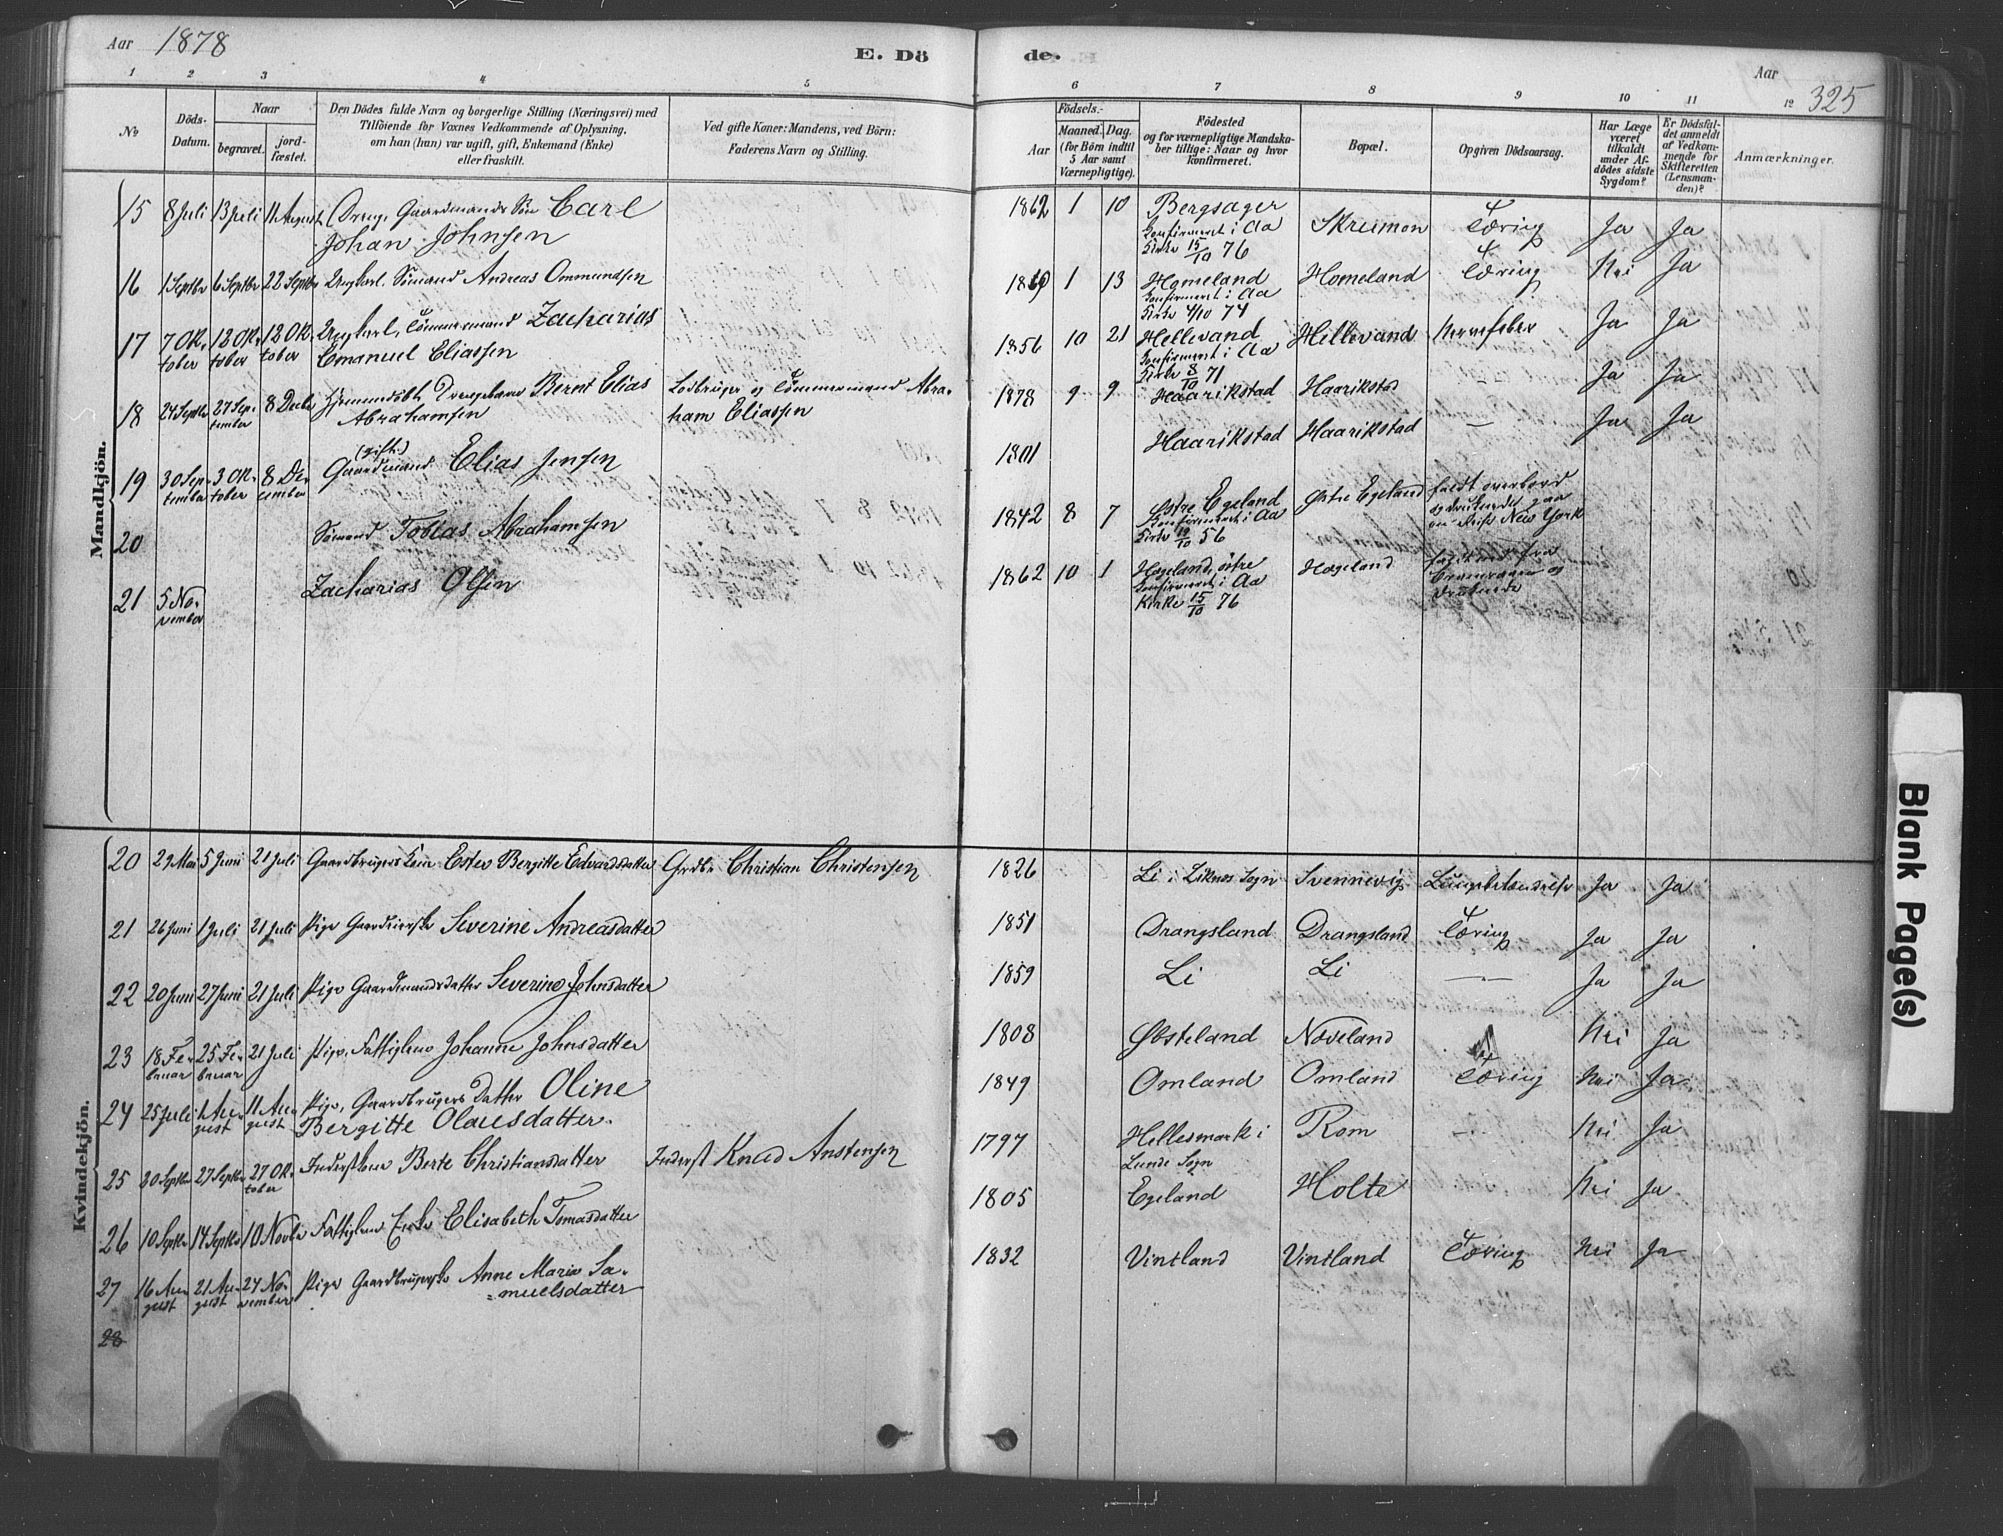 Aar 1878
E. Dö
de.
Aar
325
1 2 3 4 5 6 7 8 9 10 11 12
No
Döds-Datum.
Naar
begravet.
jord-fæstet.
Den Dödes fulde Navn og borgerlige Stilling (Næringsvei) med
Tilföiende for Voxnes Vedkommende af Oplysning,
om han (hun) var ugift, gift, Enkemand (Enke)
eller fraskilt.
Ved gifte Koner: Mandens, ved Börn:
Faderens Navn og Stilling.
Födsels.-
Aar
Maaned. Dag.
(for Börn indtil
5 Aar samt
Værnepligtige).
Födested
og for værnepligtige Mandska-
ber tillige: Naar og hvor
konfirmeret.
Bopæl.
Opgiven Dödsaarsag.
Har Læge
været
tilkaldt
under Af-
dödes sidste
Sygdom?
Er Dödsfal-
det anmeldt
af Vedkom-
mende for
Skifteretten
(Lensman-
den)?
Anmærkninger.
Mandkjön.
15 8 Juli 13 Juli 11 August Gaardmands Sön Carl
Johan Johnsen
1862 1 10 Bergsager
Konfirmeret i Aa
Kirke 15/10 76
Skreimon Tæring Ja Ja
16 1 Septbr 6 Septbr 22 Septbr Ungkarl. Sömand Andreas Ommundsen
13 Homeland
Konfirmeret i Aa
Kirke 4/10 74
Homeland Tæring Nei Ja
17 7 Ok-
tober
12 Ok-
tober
13 Ok-
tober
Ungkarl, Tömmermand Zacharias
Emanuel Eliassen
1856 10 21 Hellevand
Konfirmeret i Aa
Kirke 8/10 71
Hellevand Nervefeber Ja Ja
18 24 Septbr 27 Sep-
tember
8 Decbr
Hjemmedöbt Drengebarn Bernt Elias
Abrahamsen
Lodbruger og Tömmermand Abra-
ham Eliassen
1878 9 9 Haarikstad Haarikstad Ja Ja
19 30 Sep-
tember
3 Ok-
tober
8 De-
cember
(gift)
Gaardmand Elias Jensen
1801 Haarikstad Haarikstad — Ja Ja
20 Sömand Tobias Abrahamsen
1842 8 7 Østre Egeland
Konfirmeret i Aa
Kirke 19/10 56
Østre Egeland
faldt overbord
og druknede paa
en Reise New York
21 5 No-
vember
Zacharias Olsen
1862 10 1 Hægeland, östre
Konfirmeret i Aa
Kirke 15/10 76
Hægeland
og
druknede
Kvindekjön.
20 29 Mai 5 Juni 21 Juli Gaardbrugers Kone Ester Bergitte Edvardsdatter Grdbr Christian Christensen
1826 Li i Liknes Sogn Svennevig Lungebetændelse Ja Ja
21 26 Juni 1 Juli 21 Juli Pige Severine Andreasdatter
1851 Drangsland Drangsland Tæring Ja Ja
22 20 Juni 27 Juni 21 Juli Pige Gaardmandsdatter Severine Johnsdatter
1859 Li Li — Ja Ja
23 18 Fe-
bruar
25 Fe-
bruar
21 Juli Pige, Fattiglem Johanne Johnsdatter
1808 Øbsteland Noveland Nei Ja
24 25 Juli 1 Au-
gust
11 Au-
gust
Pige, Gaardbrugers Datter Oline
Bergitte Olausdatter.
1849 Omland Omland Tæring Nei Ja
25 20 Septbr 27 Septbr 27 Ok-
tober
Inderstkone Berte Christiansdatter Inderst Knud Anstensen
1797 Hellesmark i
Lunde Sogn
Rom — Nei Ja
26 10 Septbr 14 Septbr 10 Novbr Fattiglem Enke Elisabeth Tomasdatter
1805 Egeland Holte Nei Ja
27 16 Au-
gust
21 Au-
gust
24 No-
vember
Pige Anne Marie Sa-
muelsdatter
1832 Vintland Vintland Tæring Nei Ja
28
Blank Page(s)